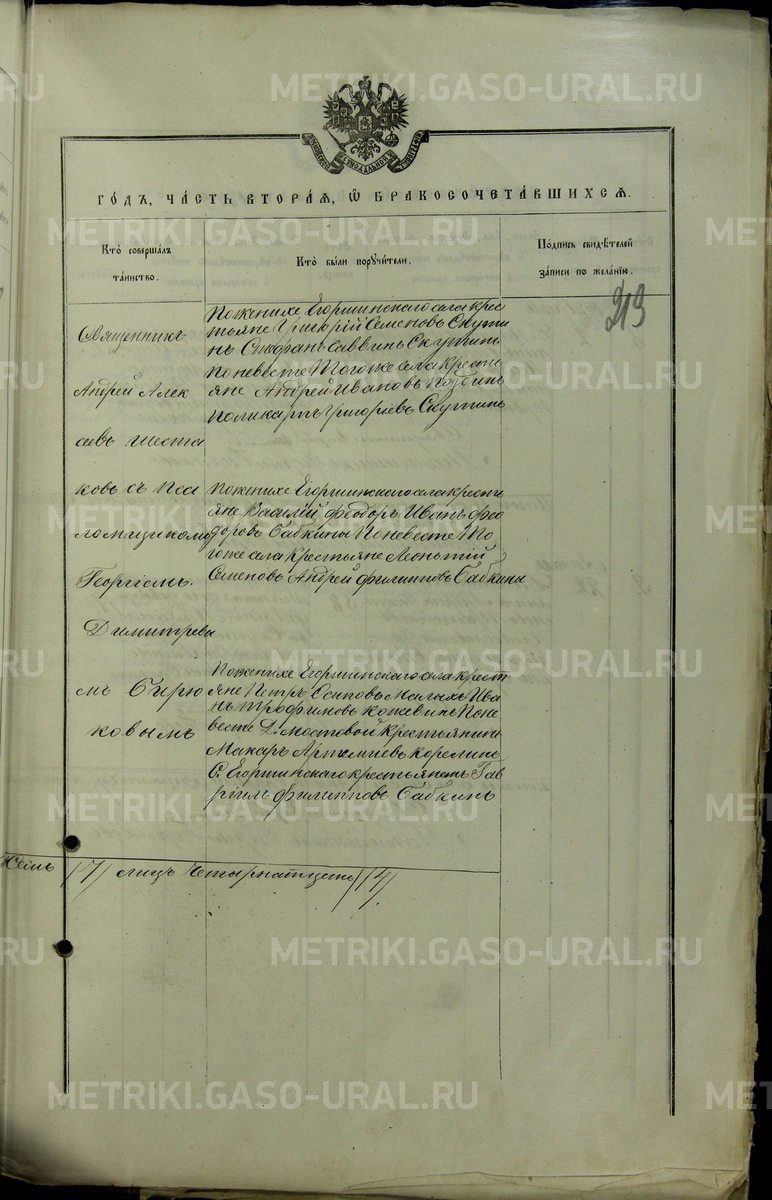 ГО́ДЪ, ЧА́СТЬ ВТОРА́Я, Ѡ БРАКОСОЧЕТА́ВШИХСЯ.
Кто̀ соверша́лъ
та́инство.
Кто̀ бы́ли порꙋчи́тели.
По́дпись свидѣ́телей
за́писи по жела́нїю.
213
Священникъ
Андрей Алек
сѣевъ Шеста
ковъ съ Пса
ломщикомъ
Георгіемъ
Димитріевы
мъ Бирю
ковымъ
По женихѣ Егоршинскаго села крес
тьяне Григорій Семеновъ Скути
нъ Стефанъ Саввинъ Скутинъ
По невесте Тогоже села кресть
яне Андрей Ивановъ
Поликарпъ Григорьевъ Скутинъ
По женихе Егоршинскаго села кресть
яне Василій Феодоръ Иванъ Фео
доровы Бабкины По невесте То
гоже села Крестьяне Леонтій
Семеновъ Андрей Филипповъ Бабкины
По женихе Егоршинскаго села крест
яне Петръ Осиповъ Малыхъ Ива
нъ Трофимовъ Кожевинъ По не
весте Д. Мостовой Крестьянинъ
Макаръ Артемьевъ Корелинъ
С. Егоршинскаго крестьянинъ Гав
ріилъ Филипповъ Бабкинъ
/7/ лицъ Четырнатцеть /14/.
METRIKI.GASO-URAL.RU